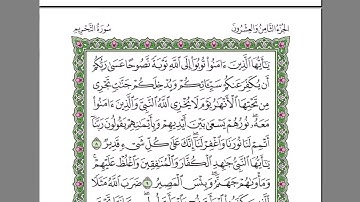 سُورَةُ التَّحْرِيمِ الجُزْءُ الثَّامِنُ وَالعِشْرُونَ
يَٰٓأَيُّهَا ٱلَّذِينَ ءَامَنُوا۟ تُوبُوٓا۟ إِلَى ٱللَّهِ تَوْبَةً نَّصُوحًا عَسَىٰ رَبُّكُمْ
أَن يُكَفِّرَ عَنكُمْ سَيِّـَٔاتِكُمْ وَيُدْخِلَكُمْ جَنَّٰتٍ تَجْرِى
مِن تَحْتِهَا ٱلْأَنْهَٰرُ يَوْمَ لَا يُخْزِى ٱللَّهُ ٱلنَّبِىَّ وَٱلَّذِينَ ءَامَنُوا۟
مَعَهُۥ ۖ نُورُهُمْ يَسْعَىٰ بَيْنَ أَيْدِيهِمْ وَبِأَيْمَٰنِهِمْ يَقُولُونَ رَبَّنَآ
أَتْمِمْ لَنَا نُورَنَا وَٱغْفِرْ لَنَآ ۖ إِنَّكَ عَلَىٰ كُلِّ شَىْءٍ قَدِيرٌ ٨
يَٰٓأَيُّهَا ٱلنَّبِىُّ جَٰهِدِ ٱلْكُفَّارَ وَٱلْمُنَٰفِقِينَ وَٱغْلُظْ عَلَيْهِمْ ۚ
وَمَأْوَىٰهُمْ جَهَنَّمُ ۖ وَبِئْسَ ٱلْمَصِيرُ ٩ ضَرَبَ ٱللَّهُ مَثَلًا